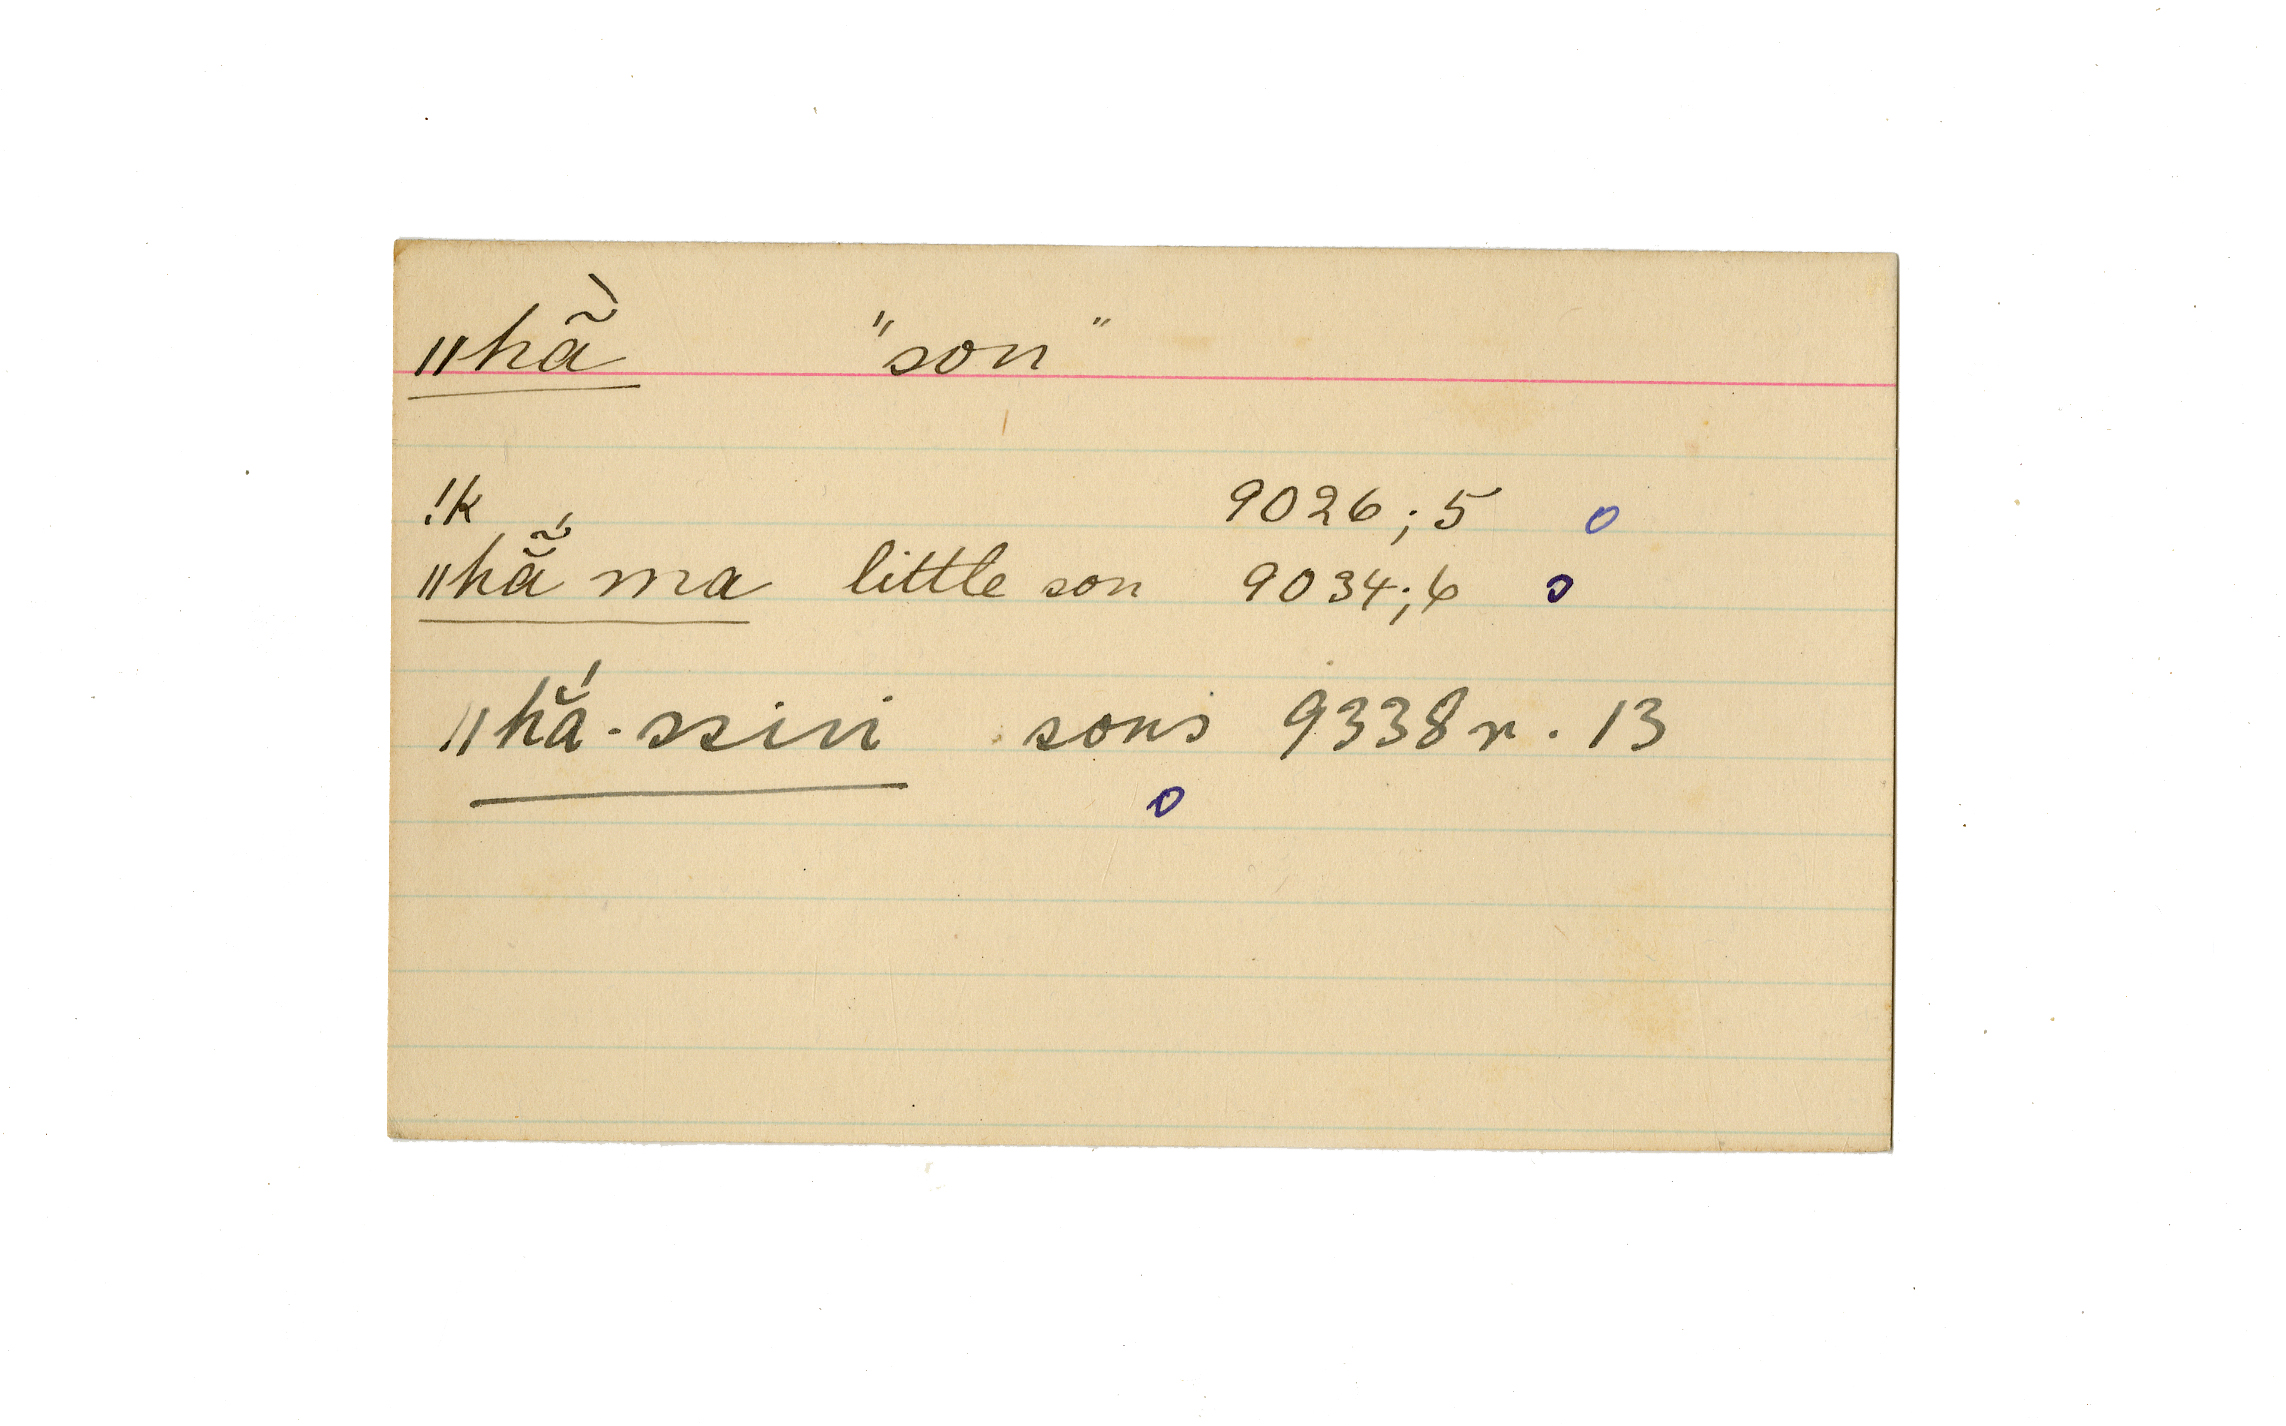 ǁhã̀ "son"
!k 9026;5 o
ǁhã̆́ ma little son 9034;6 o
ǁhắ-ssiŋ sons 9338r.13
o